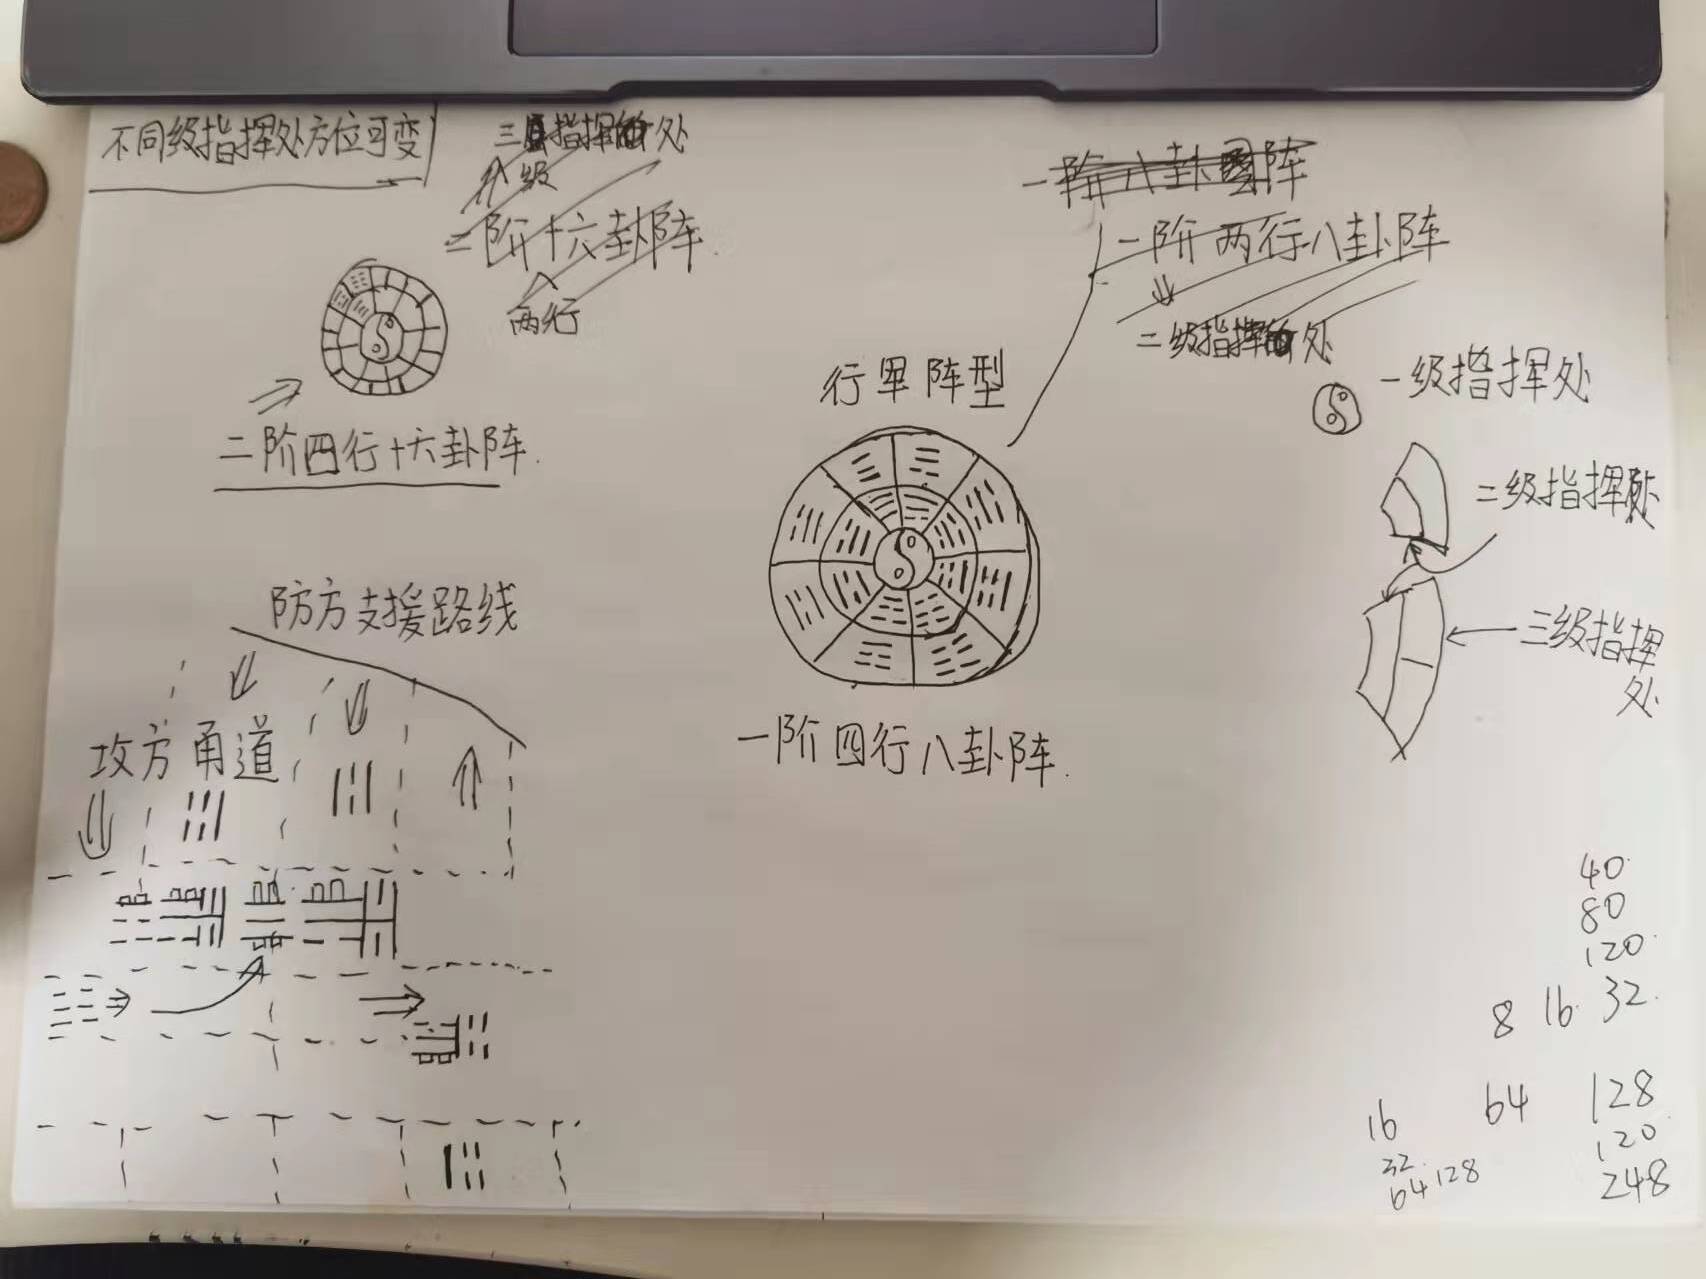 不同级指挥处方位可变
三级指挥处
二阶十六卦阵
两行
二阶四行十六卦阵.
一阶八卦阵
一阶两行八卦阵
二级指挥处
行军阵型
一阶四行八卦阵.
一级指挥处
二级指挥处
三级指挥
处
防方支援路线
攻方甬道
40
80
120
8 16 32
64 128
120
248
16
32
64 128